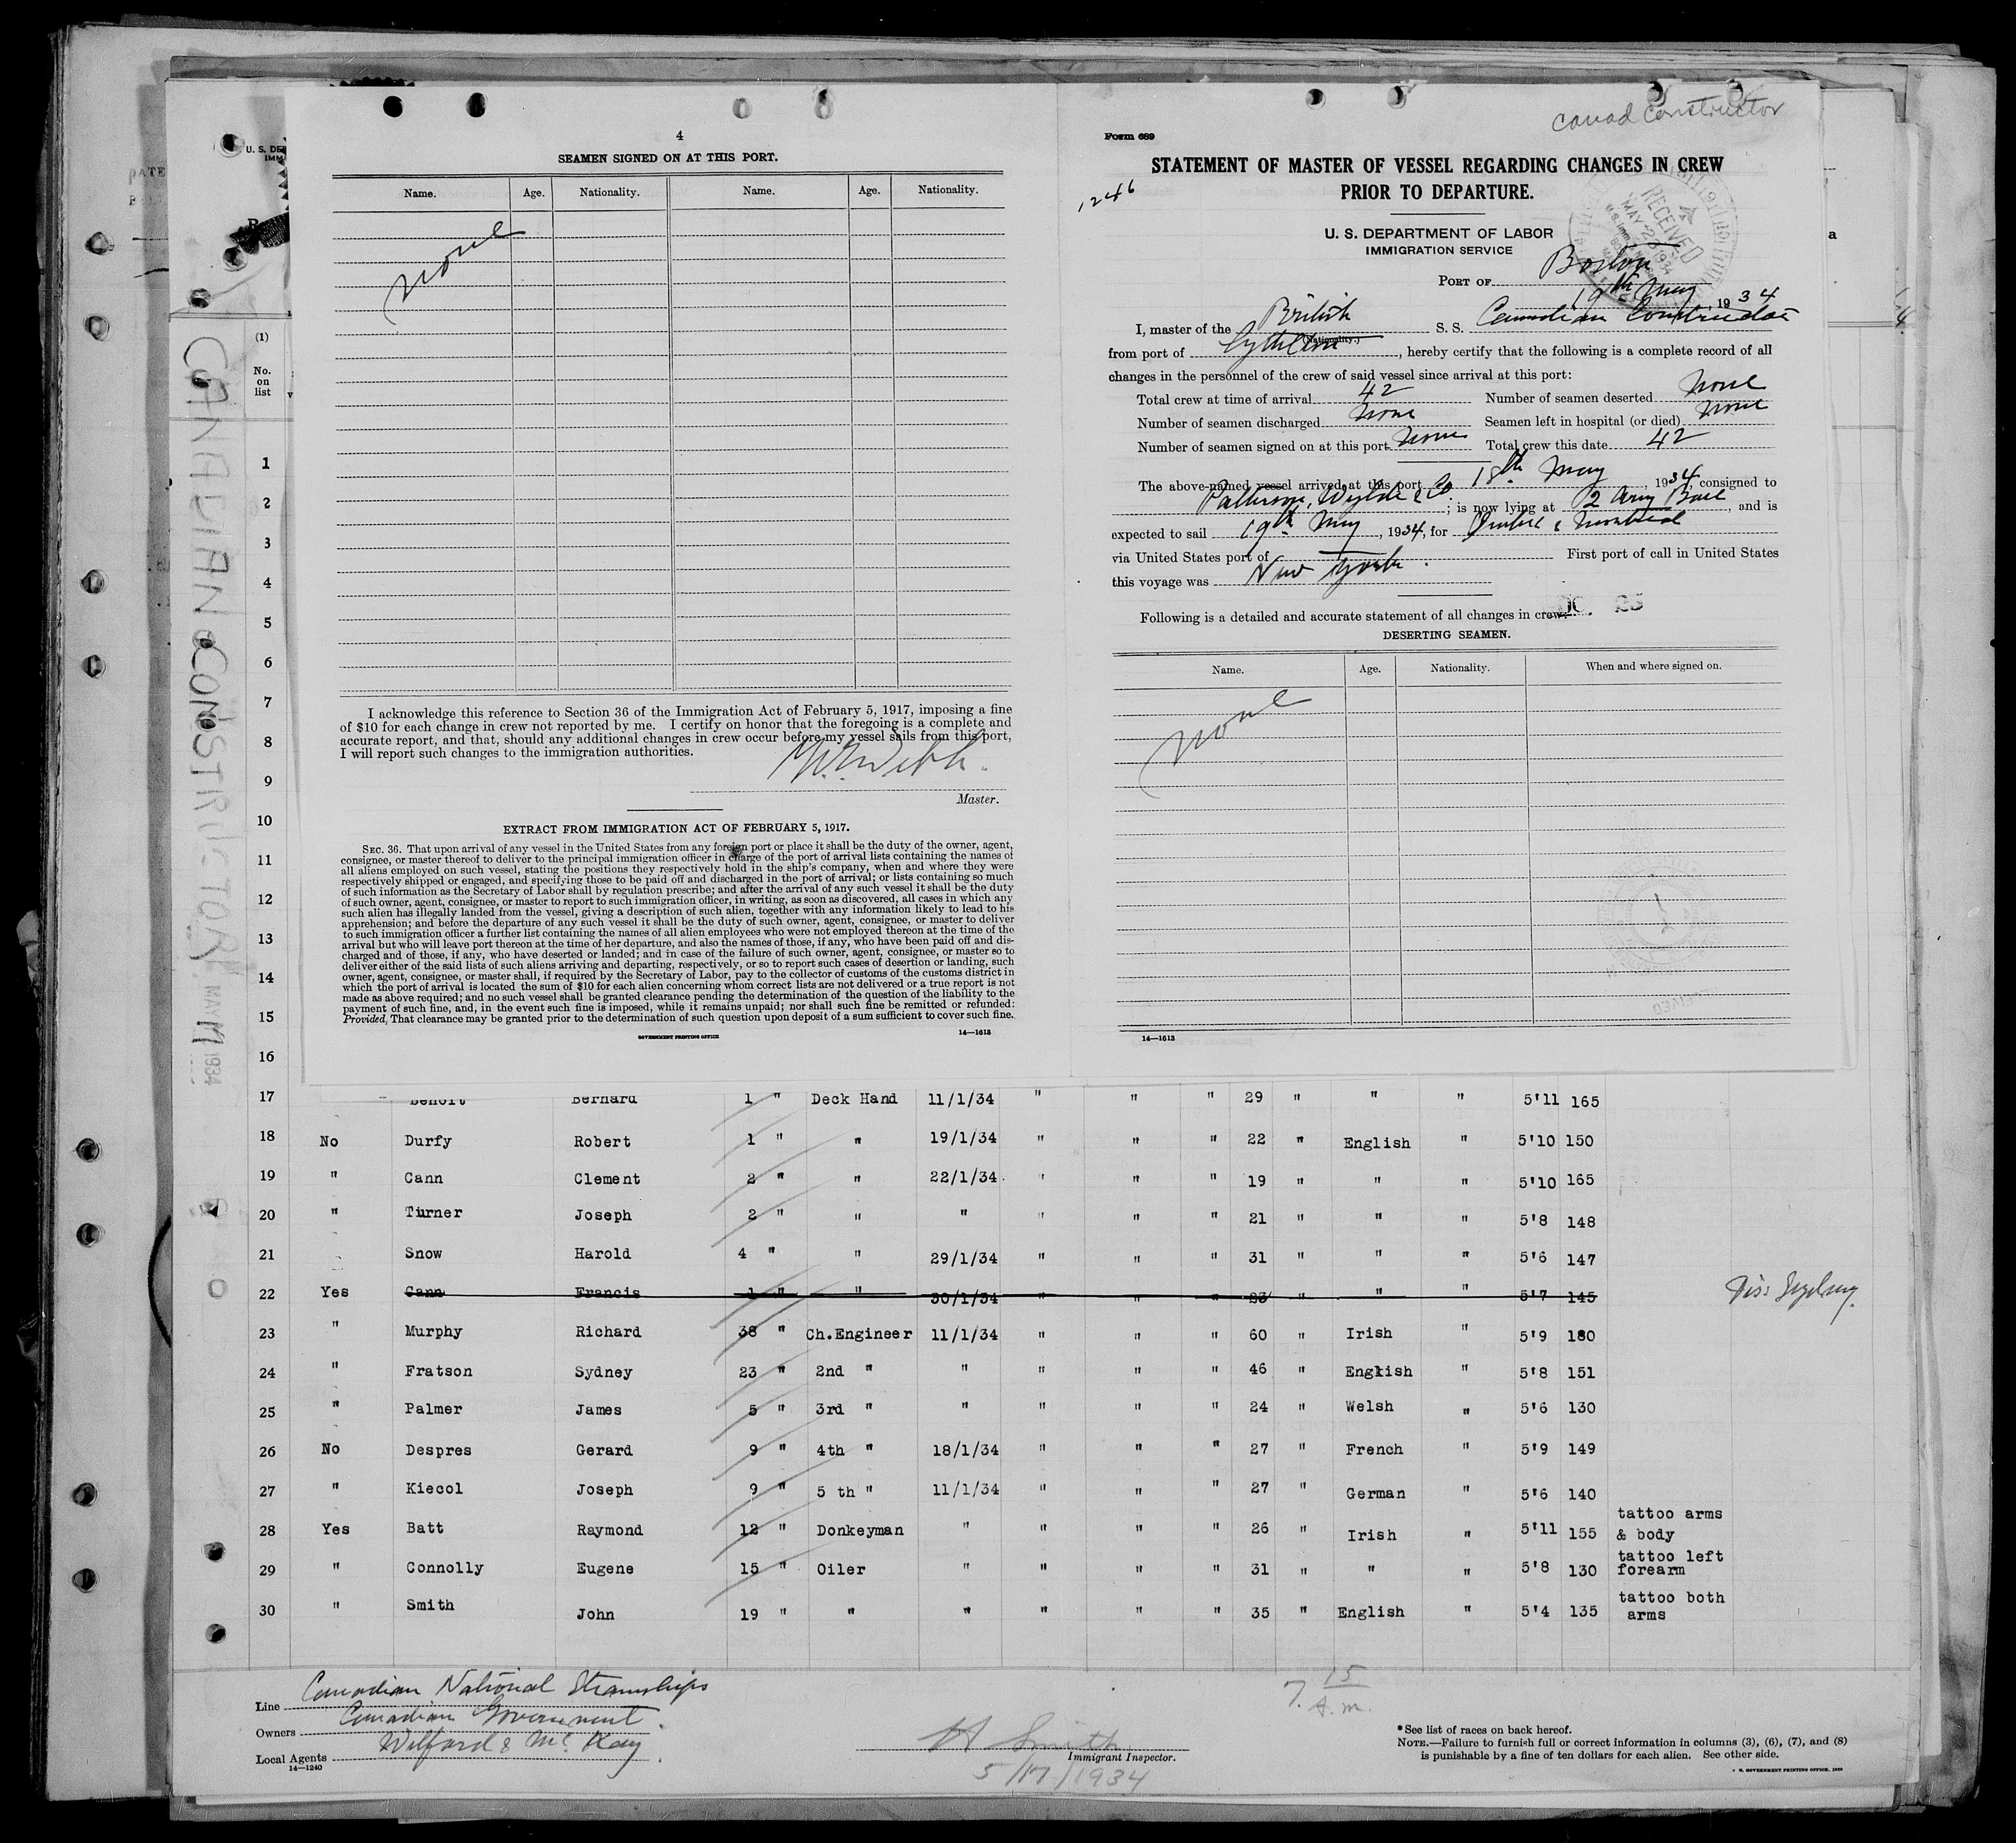 4
SEAMEN SIGNED ON AT THIS PORT.
Name. Age. Nationality. Name. Age. Nationality.
None
I acknowledge this reference to Section 36 of the Immigration Act of February 5, 1917, imposing a fine
of $10 for each change in crew not reported by me. I certify on honor that the foregoing is a complete and
accurate report, and that, should any additional changes in crew occur before my vessel sails from this port,
I will report such changes to the immigration authorities.
Webb.
Master.
EXTRACT FROM IMMIGRATION ACT OF FEBRUARY 5, 1917.
SEC. 36. That upon arrival of any vessel in the United States from any foreign port or place it shall be the duty of the owner, agent,
consignee, or master thereof to deliver to the principal immigration officer in charge of the port of arrival lists containing the names of
all aliens employed on such vessel, stating the positions they respectively hold in the ship's company, when and where they were
respectively shipped or engaged, and specifying those to be paid off and discharged in the port of arrival; or lists containing so much
of such information as the Secretary of Labor shall by regulation prescribe; and after the arrival of any such vessel it shall be the duty
of such owner, agent, consignee, or master to report to such immigration officer, in writing, as soon as discovered, all cases in which any
such alien has illegally landed from the vessel, giving a description of such alien, together with any information likely to lead to his
apprehension; and before the departure of any such vessel it shall be the duty of such owner, agent, consignee, or master to deliver
to such immigration officer a further list containing the names of all alien employees who were not employed thereon at the time of the
arrival but who will leave port thereon at the time of her departure, and also the names of those, if any, who have been paid off and dis-
charged and of those, if any, who have deserted or landed; and in case of the failure of such owner, agent, consignee, or master so to
deliver either of the said lists of such aliens arriving and departing, respectively, or so to report such cases of desertion or landing, such
owner, agent, consignee, or master shall, if required by the Secretary of Labor, pay to the collector of customs of the customs district in
which the port of arrival is located the sum of $10 for each alien concerning whom correct lists are not delivered or a true report is not
made as above required; and no such vessel shall be granted clearance pending the determination of the question of the liability to the
payment of such fine, and, in the event such fine is imposed, while it remains unpaid; nor shall such fine be remitted or refunded:
Provided, That clearance may be granted prior to the determination of such question upon deposit of a sum sufficient to cover such fine.
14—1613
GOVERNMENT PRINTING OFFICE
canad constructor
Form 689
STATEMENT OF MASTER OF VESSEL REGARDING CHANGES IN CREW
PRIOR TO DEPARTURE.
1246
RECEIVED
MAY 2 1934
U. S. DEPARTMENT OF LABOR
IMMIGRATION SERVICE
PORT OF Boston
19th May 1934
I, master of the British S. S. Canadian Constructor
(Nationality.)
from port of Lyttelton, hereby certify that the following is a complete record of all
changes in the personnel of the crew of said vessel since arrival at this port:
Total crew at time of arrival 42 Number of seamen deserted None
Number of seamen discharged None Seamen left in hospital (or died) None
Number of seamen signed on at this port None Total crew this date 42
The above-named vessel arrived at this port 18th May, 1934, consigned to
Patterson, Wylde & Co.; is now lying at 2 Army Base, and is
expected to sail 19th May, 1934, for Quebec & Montreal
via United States port of First port of call in United States
this voyage was New York.
Following is a detailed and accurate statement of all changes in crew:
DESERTING SEAMEN.
Name. Age. Nationality. When and where signed on.
None
14—1613
CANADIAN CONSTRUCTOR
MAY 17 1934
U. S. DE
IMM
(1)
No.
on
list
1
2
3
4
5
6
7
8
9
10
11
12
13
14
15
16
17 Benoit Bernard 1 " Deck Hand 11/1/34 " " " 29 " " " 5'11 165
18 No Durfy Robert 1 " " 19/1/34 " " " 22 " English " 5'10 150
19 " Cann Clement 2 " " 22/1/34 " " " 19 " " " 5'10 165
20 " Turner Joseph 2 " " " " " " 21 " " " 5'8 148
21 Snow Harold 4 " " 29/1/34 " " " 31 " " " 5'6 147
22 Yes Cann Francis 1 " " 30/1/34 " " " 23 " " " 5'7 145
23 " Murphy Richard 38 " Ch.Engineer 11/1/34 " " " 60 " Irish " 5'9 180
24 " Fratson Sydney 23 " 2nd " " " " " 46 " English " 5'8 151
25 " Palmer James 5 " 3rd " " " " " 24 " Welsh " 5'6 130
26 No Despres Gerard 9 " 4th " 18/1/34 " " " 27 " French " 5'9 149
27 " Kiecol Joseph 9 " 5 th " 11/1/34 " " " 27 " German " 5'6 140
28 Yes Batt Raymond 12 " Donkeyman " " " " 26 " Irish " 5'11 155 tattoo arms & body
29 " Connolly Eugene 15 " Oiler " " " " 31 " " " 5'8 130 tattoo left forearm
30 " Smith John 19 " " " " " " 35 " English " 5'4 135 tattoo both arms
Line Canadian National Steamships
Owners Canadian Government.
Local Agents Wilford & McKay.
14—1240
H Smith
Immigrant Inspector.
5/17/1934
7.15
A.m.
*See list of races on back hereof.
NOTE.—Failure to furnish full or correct information in columns (3), (6), (7), and (8)
is punishable by a fine of ten dollars for each alien. See other side.
GOVERNMENT PRINTING OFFICE